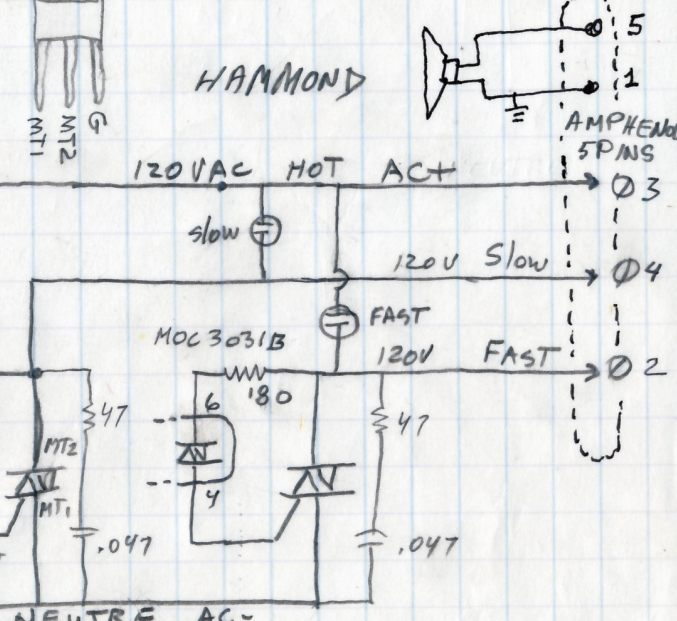 5
HAMMOND
1
MT1 MT2 G
AMPHENOL
5PINS
120VAC HOT AC+
3
slow
120V Slow
4
FAST
MOC3031B
120V FAST
2
180
6
47
47
MT2
4
MT1
.047
.047
NEUTRE AC-